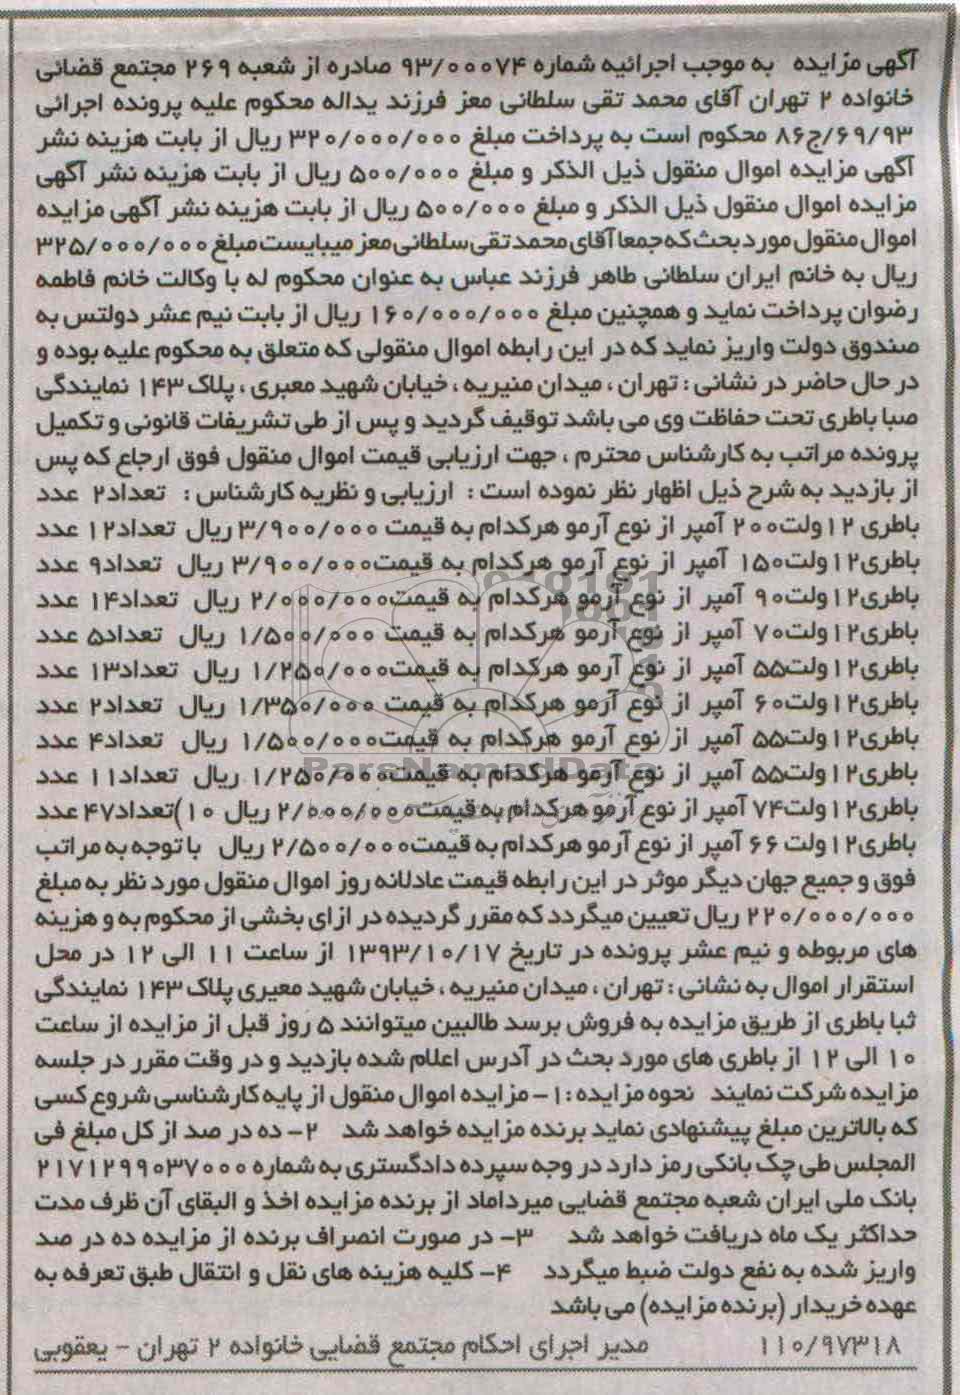 آگهی مزایده   به موجب اجرائیه شماره ۹۳/۰۰۰۷۴ صادره از شعبه ۲۶۹ مجتمع قضائی
خانواده ۲ تهران آقای محمد تقی سلطانی معز فرزند یداله محکوم علیه پرونده اجرائی
۸۶ج/۶۹/۹۳ محکوم است به پرداخت مبلغ ۳۲۰/۰۰۰/۰۰۰ ریال از بابت هزینه نشر
آگهی مزایده اموال منقول ذیل الذکر و مبلغ ۵۰۰/۰۰۰ ریال از بابت هزینه نشر آگهی
مزایده اموال منقول ذیل الذکر و مبلغ ۵۰۰/۰۰۰ ریال از بابت هزینه نشر آگهی مزایده
اموال منقول مورد بحث که جمعا آقای محمد تقی سلطانی معز میبایست مبلغ ۳۲۵/۰۰۰/۰۰۰
ریال به خانم ایران سلطانی طاهر فرزند عباس به عنوان محکوم له با وکالت خانم فاطمه
رضوان پرداخت نماید و همچنین مبلغ ۱۶۰/۰۰۰/۰۰۰ ریال از بابت نیم عشر دولتس به
صندوق دولت واریز نماید که در این رابطه اموال منقولی که متعلق به محکوم علیه بوده و
در حال حاضر در نشانی : تهران ، میدان منیریه ، خیابان شهید معبری ، پلاک ۱۴۳ نمایندگی
صبا باطری تحت حفاظت وی می باشد توقیف گردید و پس از طی تشریفات قانونی و تکمیل
پرونده مراتب به کارشناس محترم ، جهت ارزیابی قیمت اموال منقول فوق ارجاع که پس
از بازدید به شرح ذیل اظهار نظر نموده است :  ارزیابی و نظریه کارشناس :  تعداد۲ عدد
باطری ۱۲ولت۲۰۰ آمپر از نوع آرمو هرکدام به قیمت ۳/۹۰۰/۰۰۰ ریال  تعداد۱۲ عدد
باطری۱۲ولت۱۵۰ آمپر از نوع آرمو هرکدام به قیمت۳/۹۰۰/۰۰۰ ریال  تعداد۹ عدد
باطری۱۲ولت۹۰ آمپر از نوع آرمو هرکدام به قیمت۲/۰۰۰/۰۰۰ ریال  تعداد۱۴ عدد
باطری۱۲ولت۷۰ آمپر از نوع آرمو هرکدام به قیمت ۱/۵۰۰/۰۰۰ ریال  تعداد۵ عدد
باطری۱۲ولت۵۵ آمپر از نوع آرمو هرکدام به قیمت۱/۲۵۰/۰۰۰ ریال  تعداد۱۳ عدد
باطری۱۲ولت۶۰ آمپر از نوع آرمو هرکدام به قیمت ۱/۳۵۰/۰۰۰ ریال  تعداد۲ عدد
باطری۱۲ولت۵۵ آمپر از نوع آرمو هرکدام به قیمت۱/۵۰۰/۰۰۰ ریال  تعداد۴ عدد
باطری۱۲ولت۵۵ آمپر از نوع آرمو هرکدام به قیمت۱/۲۵۰/۰۰۰ ریال  تعداد۱۱ عدد
باطری۱۲ولت۷۴ آمپر از نوع آرمو هرکدام به قیمت۲/۰۰۰/۰۰۰ ریال  ۱۰)تعداد۴۷ عدد
باطری۱۲ولت ۶۶ آمپر از نوع آرمو هرکدام به قیمت۲/۵۰۰/۰۰۰ ریال   با توجه به مراتب
فوق و جمیع جهان دیگر موثر در این رابطه قیمت عادلانه روز اموال منقول مورد نظر به مبلغ
۲۲۰/۰۰۰/۰۰۰ ریال تعیین میگردد که مقرر گردیده در ازای بخشی از محکوم به و هزینه
های مربوطه و نیم عشر پرونده در تاریخ ۱۳۹۳/۱۰/۱۷ از ساعت ۱۱ الی ۱۲ در محل
استقرار اموال به نشانی : تهران ، میدان منیریه ، خیابان شهید معیری پلاک ۱۴۳ نمایندگی
ثبا باطری از طریق مزایده به فروش برسد طالبین میتوانند ۵ روز قبل از مزایده از ساعت
۱۰ الی ۱۲ از باطری های مورد بحث در آدرس اعلام شده بازدید و در وقت مقرر در جلسه
مزایده شرکت نمایند   نحوه مزایده : ۱- مزایده اموال منقول از پایه کارشناسی شروع کسی
که بالاترین مبلغ پیشنهادی نماید برنده مزایده خواهد شد   ۲- ده در صد از کل مبلغ فی
المجلس طی چک بانکی رمز دارد در وجه سپرده دادگستری به شماره ۲۱۷۱۲۹۹۰۳۷۰۰۰
بانک ملی ایران شعبه مجتمع قضایی میرداماد از برنده مزایده اخذ و البقای آن ظرف مدت
حداکثر یک ماه دریافت خواهد شد    ۳- در صورت انصراف برنده از مزایده ده در صد
واریز شده به نفع دولت ضبط میگردد    ۴- کلیه هزینه های نقل و انتقال طبق تعرفه به
عهده خریدار (برنده مزایده) می باشد
۱۱۰/۹۷۳۱۸          مدیر اجرای احکام مجتمع قضایی خانواده ۲ تهران - یعقوبی
ParsNamadData